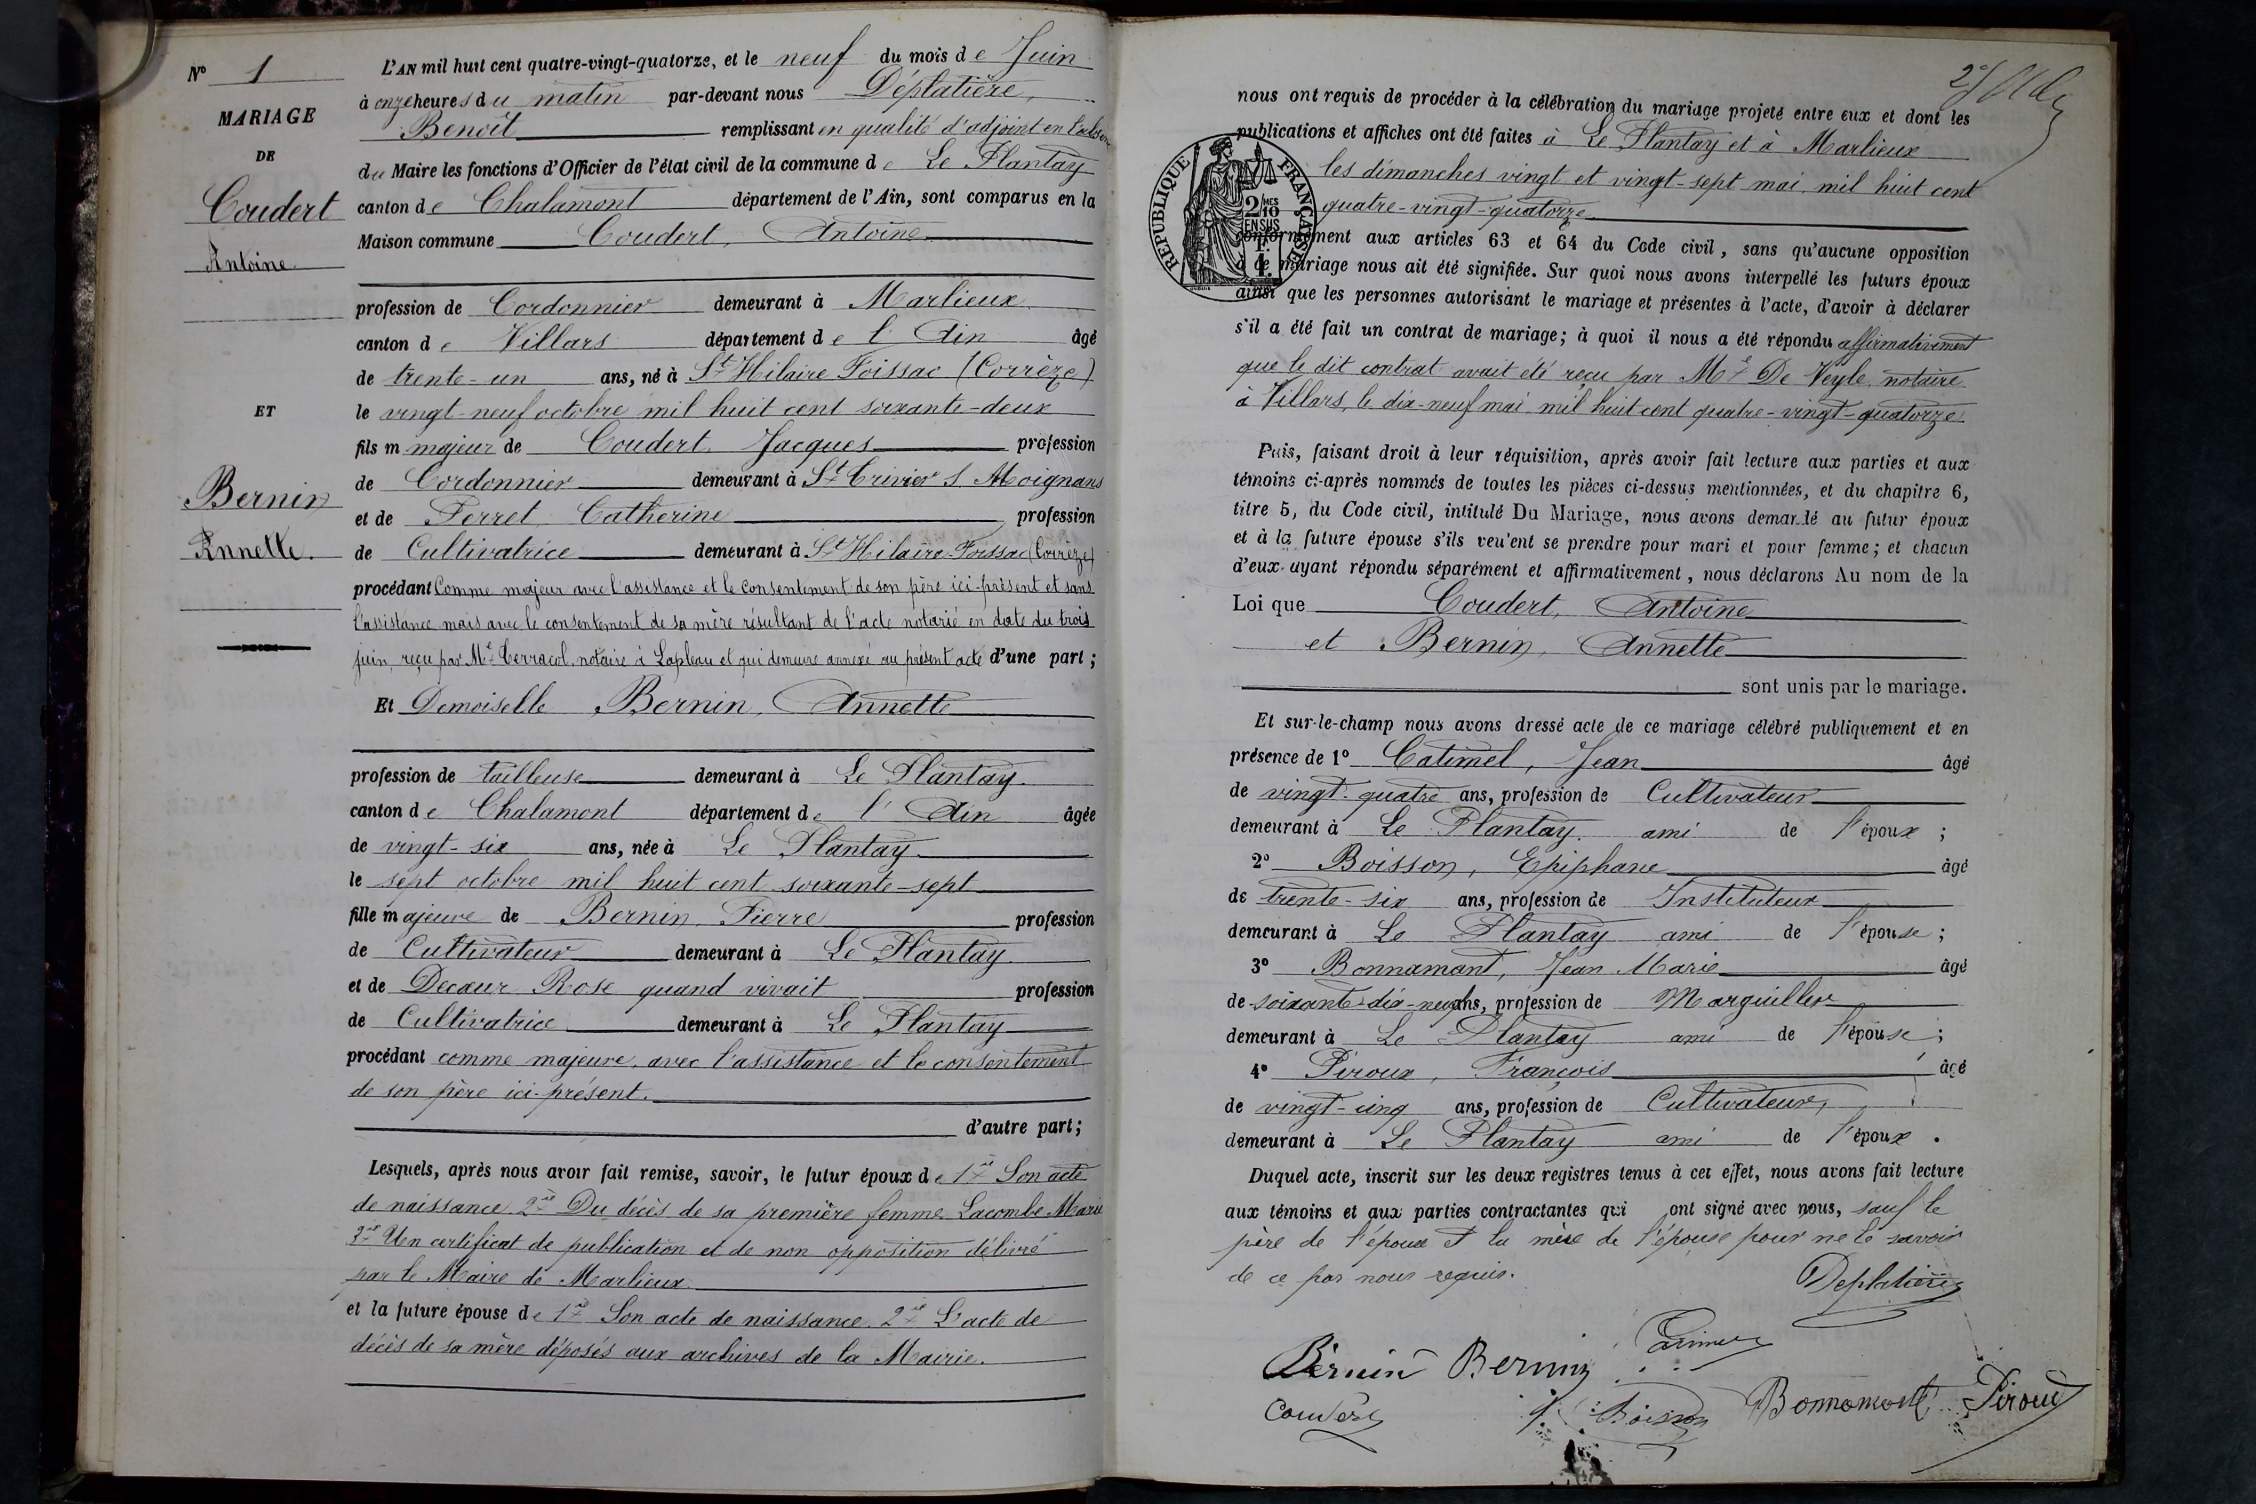 N° 1
MARIAGE
DE
Coudert
Antoine.
ET
Bernin
Annette.
L'AN mil huit cent quatre-vingt-quatorze, et le neuf du mois de Juin
à onze heures du matin par-devant nous Déplatière,
Benoît remplissant en qualité d'adjoint en
du Maire les fonctions d'Officier de l'état civil de la commune de Le Plantay
canton de Chalamont département de l'Ain, sont comparus en la
Maison commune Coudert, Antoine
profession de Cordonnier demeurant à Marlieux
canton de Villars département de l'Ain âgé
de trente-un ans, né à St Hilaire Foissac (Corrèze)
le vingt-neuf octobre mil huit cent soixante-deux
fils majeur de Coudert, Jacques profession
de Cordonnier demeurant à St Trivier s Moignans
et de Perret Catherine profession
de Cultivatrice demeurant à St Hilaire-Foissac (Corrèze)
procédant Comme majeur avec l'assistance et le consentement de son père ici-présent et sans
l'assistance mais avec le consentement de sa mère résultant de l'acte notarié en date du trois
juin, reçu par Me Terracol, notaire à Lapleau et qui demeure annexé au présent acte d'une part ;
Et Demoiselle Bernin, Annette
profession de tailleuse demeurant à Le Plantay.
canton de Chalamont département de l'Ain âgée
de vingt-six ans, née à Le Plantay
le sept octobre mil huit cent soixante-sept
fille majeure de Bernin Pierre profession
de Cultivateur demeurant à Le Plantay
et de Decœur Rose quand vivait profession
de Cultivatrice demeurant à Le Plantay
procédant comme majeure, avec l'assistance et le consentement
de son père ici-présent.
d'autre part ;
Lesquels, après nous avoir fait remise, savoir, le futur époux de 1nt Son acte
de naissance 2nt Du décès de sa première femme Lacombe Marie
3nt Un certificat de publication et de non opposition délivré
par le Maire de Marlieux
et la future épouse de 1nt Son acte de naissance. 2nt L'acte de
décès de sa mère déposés aux archives de la Mairie.
nous ont requis de procéder à la célébration du mariage projeté entre eux et dont les
publications et affiches ont été faites à Le Plantay et à Marlieux
les dimanches vingt et vingt-sept mai mil huit cent
quatre-vingt-quatorze
RÉPUBLIQUE FRANÇAISE
2 MES 10
EN SUS
conformément aux articles 63 et 64 du Code civil, sans qu'aucune opposition
à ce mariage nous ait été signifiée. Sur quoi nous avons interpellé les futurs époux
ainsi que les personnes autorisant le mariage et présentes à l'acte, d'avoir à déclarer
s'il a été fait un contrat de mariage ; à quoi il nous a été répondu affirmativement
que le dit contrat avait été reçu par Me De Veyle, notaire
à Villars, le dix-neuf mai mil huit cent quatre-vingt-quatorze
Puis, faisant droit à leur réquisition, après avoir fait lecture aux parties et aux
témoins ci-après nommés de toutes les pièces ci-dessus mentionnées, et du chapitre 6,
titre 5, du Code civil, intitulé Du Mariage, nous avons demandé au futur époux
et à la future épouse s'ils veulent se prendre pour mari et pour femme ; et chacun
d'eux ayant répondu séparément et affirmativement, nous déclarons Au nom de la
Loi que Coudert, Antoine
et Bernin, Annette
sont unis par le mariage.
Et sur-le-champ nous avons dressé acte de ce mariage célébré publiquement et en
présence de 1° Catimel, Jean âgé
de vingt-quatre ans, profession de Cultivateur
demeurant à Le Plantay. ami de l'époux ;
2° Boisson, Epiphane âgé
de trente-six ans, profession de Instituteur
demeurant à Le Plantay ami de l'épouse ;
3° Bonnamant, Jean Marie âgé
de soixante-dix-neuf ans, profession de Marguillier
demeurant à Le Plantay ami de l'épouse ;
4° Piroux, François âgé
de vingt-cinq ans, profession de Cultivateur,
demeurant à Le Plantay ami de l'époux.
Duquel acte, inscrit sur les deux registres tenus à cet effet, nous avons fait lecture
aux témoins et aux parties contractantes qui ont signé avec nous, sauf le
père de l'époux et la mère de l'épouse pour ne le savoir
de ce par nous requis.
Deplatière
Bernin Bernin
Coudert Boisson Bonnamont Piroud